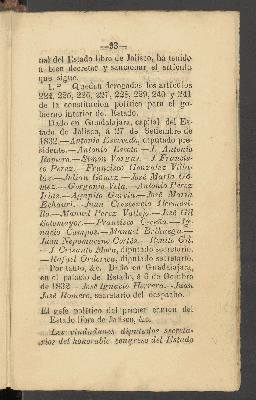 —33—
nal del Estado libre de Jalisco, ha tenido
a bien decretar y sancionar el artículo
que sigue.
1.º Quedan derogados los artículos
224, 225, 226, 227, 228, 229, 240 y 241
de la constitucion política para el go-
bierno interior del Estado.
Dado en Guadalajara, capital del Es-
tado de Jalisco, á 27 de Setiembre de
1832.—Antonio Escovedo, diputado pre-
sidente.—Antonio Escoto.—J. Antonio
Romero.—Simon Vargas.—J. Francis-
co Perez.—Francisco Gonzalez Villa-
Julian Gomez.—José María Go-
mez.—Gorgonio Vela.—Antonio Perez
Agapito García.—José María
Echauri.—Juan Crescencio Hermosi-
llo.—Manuel Perez Vallejo.—José Gil
Sotomayor.—Francisco García.—Ig-
nacio Campos.—Manuel
Juan Nepomuceno Cortés.—Gil.
J. Crisanto Mora, diputado secretario.
—Rafael diputado secretario.
Por tanto, &c. Dado en Guadalajara,
en el palacio de Estado, á 6 de Octubre
de 1832—José Ignacio Herrera.—Juan
José Romero, secretario del despacho.
El gefe político del primer canton del
Estado libre de Jalisco, &c.
Los ciudadanos diputados secreta-
rios del honorable congreso del Estado